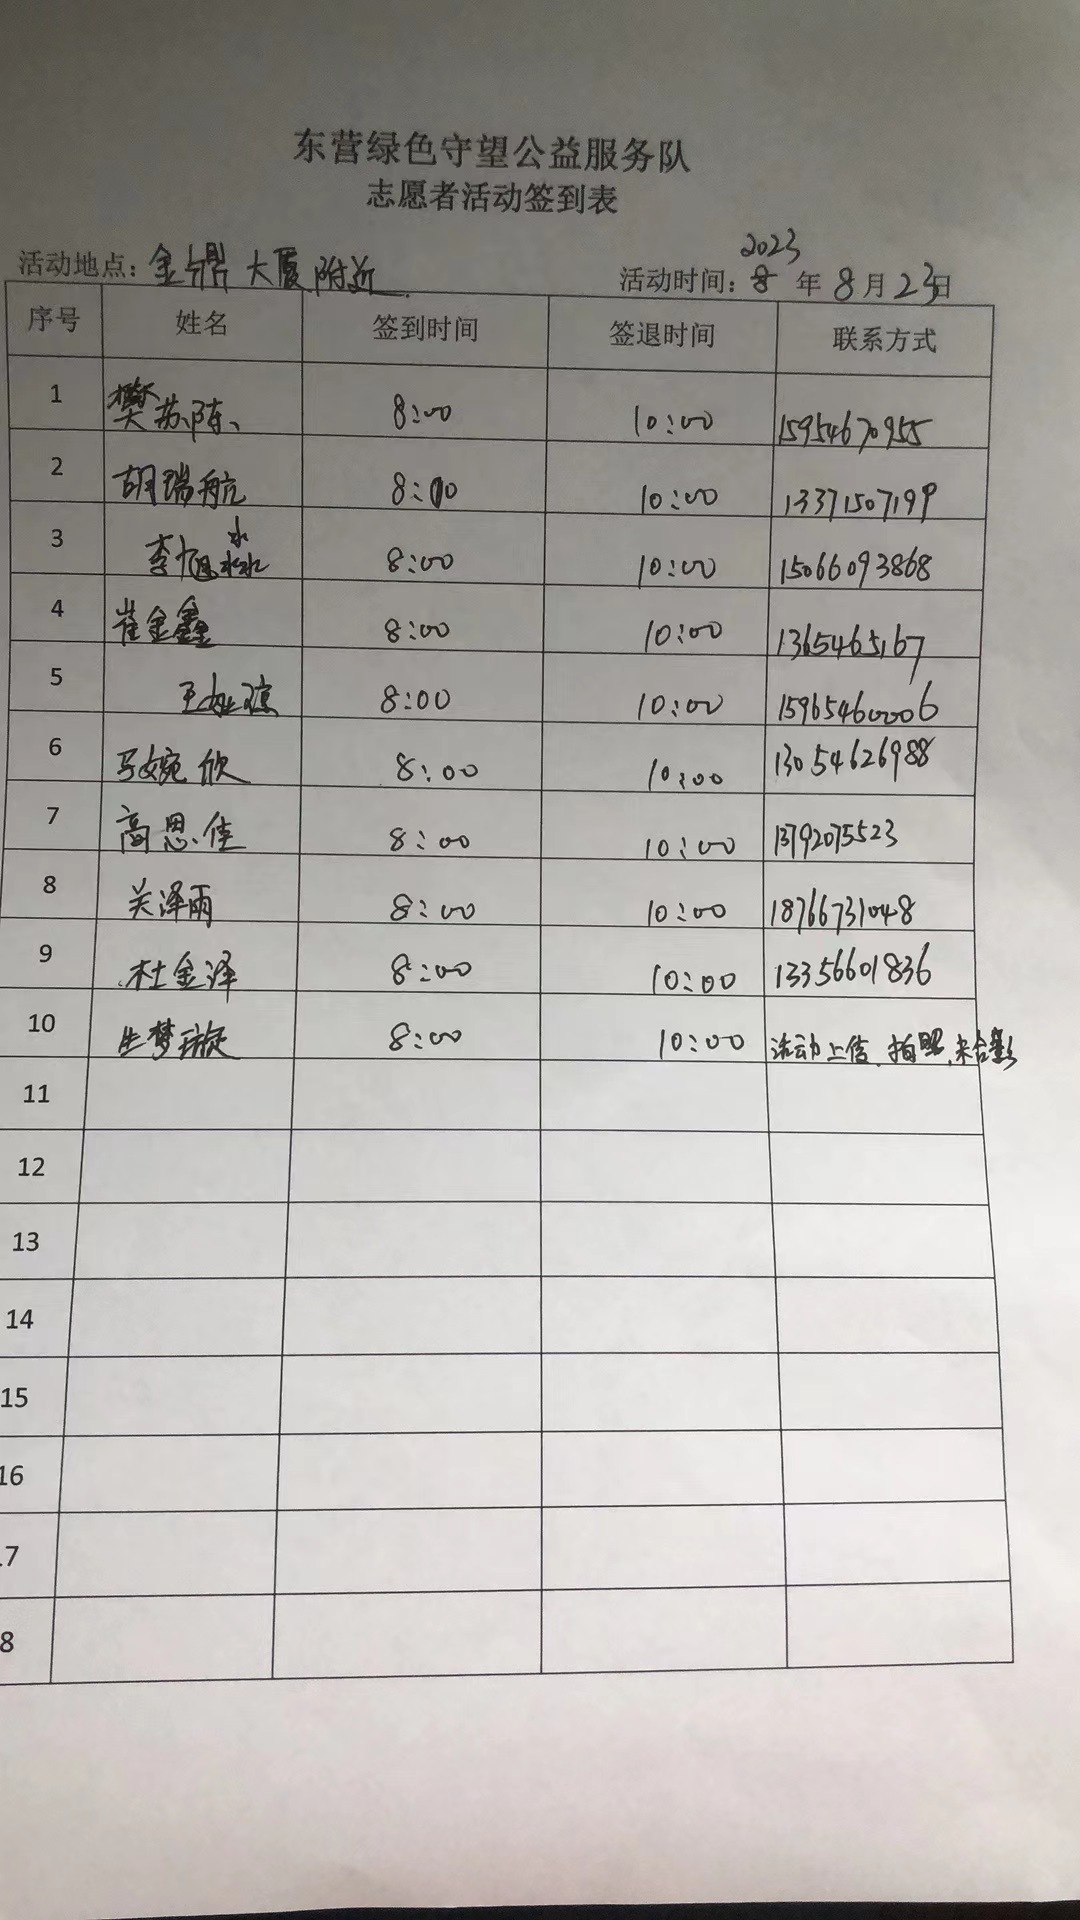 东营绿色守望公益服务队
志愿者活动签到表
2023
活动地点：金鼎大厦附近 活动时间：8年8月23日
序号 姓名 签到时间 签退时间 联系方式
1 樊苏陈 8:00 10:00 15954670955
2 胡瑞航 8:00 10:00 13371507199
3 李旭淼 8:00 10:00 15066093868
4 崔金鑫 8:00 10:00 1365465167
5 王 8:00 10:00 15965460006
6 马婉欣 8:00 10:00 13054626988
7 高思佳 8:00 10:00 13792075523
8 关泽雨 8:00 10:00 18766731048
9 杜金泽 8:00 10:00 13356601836
10 生梦璇 8:00 10:00 活动上传、拍照、未合影
11
12
13
14
15
16
17
18